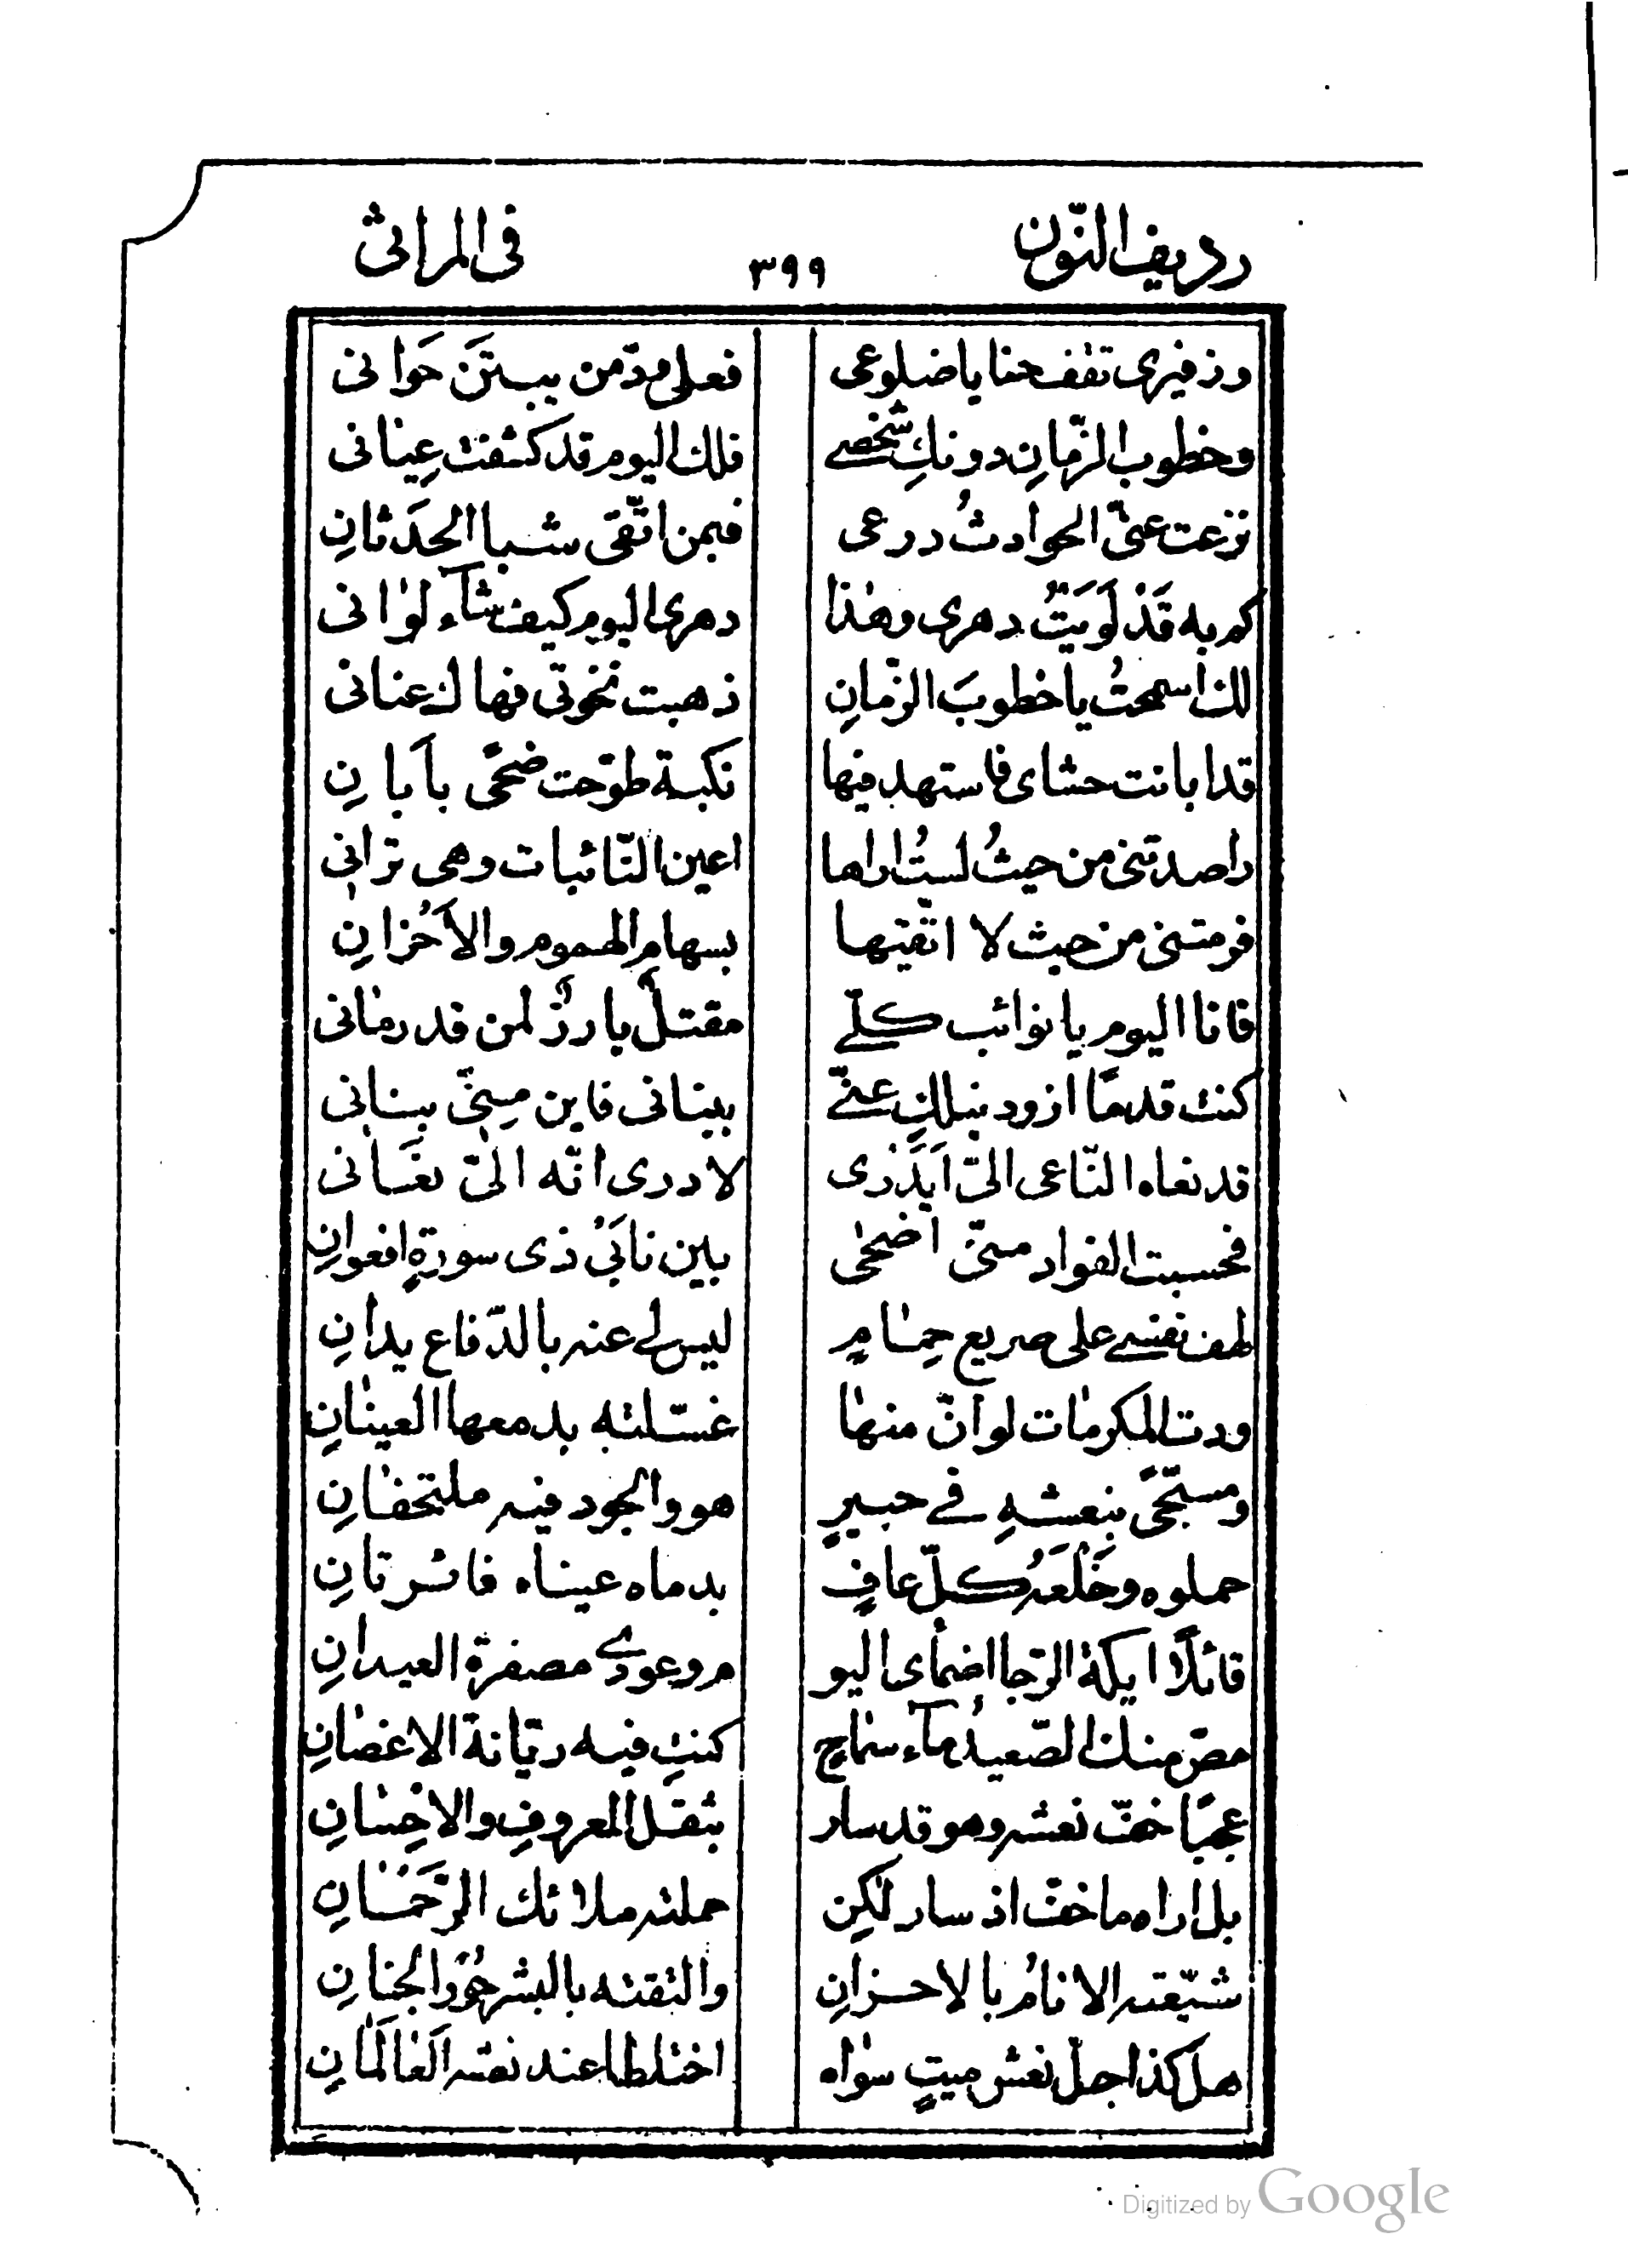 رديف النّون ٣٩٩ فى المراثى
وزفيرى تقفحنا ياضلوعى فعلى مدّمن يبتزن حَوانى
وخطوب الزّمانِ دونكِ شخصے فلك اليوم قد كشفت عِنانى
نزعت عنّى الحوادثُ درعى فبمن اتّقى شبا الحدَثانِ
كم به قَدْ لَوَيتُ دهرى وهٰذا دهرى اليوم كيف شآء لوٰانى
لك اسمحتُ ياخطوبَ الزّمانِ ذهبت نخوتى فهاك عنانى
قد ابانت حشاى فاستهد فيها نكبة طوّحت ضحًى باَبانِ
راصدتنى من حيثُ لستُ اراها اعين النّائبات وهى ترانى
فرمتنى من حيث لا اتّقيها بسهامِ الهموم والأحُزانِ
فانا اليوم يا نوائب كلّے مقتلٌ بارزٌ لمن قد رمانى
كنت قدمًا ازود نبلكِ عنّے ببنانى فاين منّى بنانى
قد نعاه النّاعى الىّ اَيَدْرى لا درى انّه الىّ نعَانى
فحسبت الفواد منّى اضحٰى بين نابَىْ ذى سورةٍ افعوانِ
لهف نفسے على صريع حِمامٍ ليس لے عنه بالدّفاع يدانِ
ودت المكرمات لو انّ منها غسّلته بدمعها العينانِ
ومسجّىً بنعشهِ فے حبيرٍ هو والجود فيه ملتحفانِ
حملوه وخَلْفَهُ كلّ عافٍ بدماه عيناه فائرتانِ
قائلًا ايكة الرّجا اضماى اليو م وعودے مصفرة العيدانِ
مصّ منك الصّعيدُ مآء سماحٍ كنتِ فيه ريّانة الاغصانِ
عجبًا خفّ نعشه وهو قد سار بثقل المعروفِ والاحسانِ
بل اراه ما خفّ اذ سار لٰكن حملته ملائك الرّحمٰنِ
شيّعته الانامُ بالاحزانِ والتقته بالبشر حُوْرالجنانِ
هل كذا جلّ نعش ميتٍ سواه اختلطا عند نعشه العٰالَمٰانِ
Digitized by Google